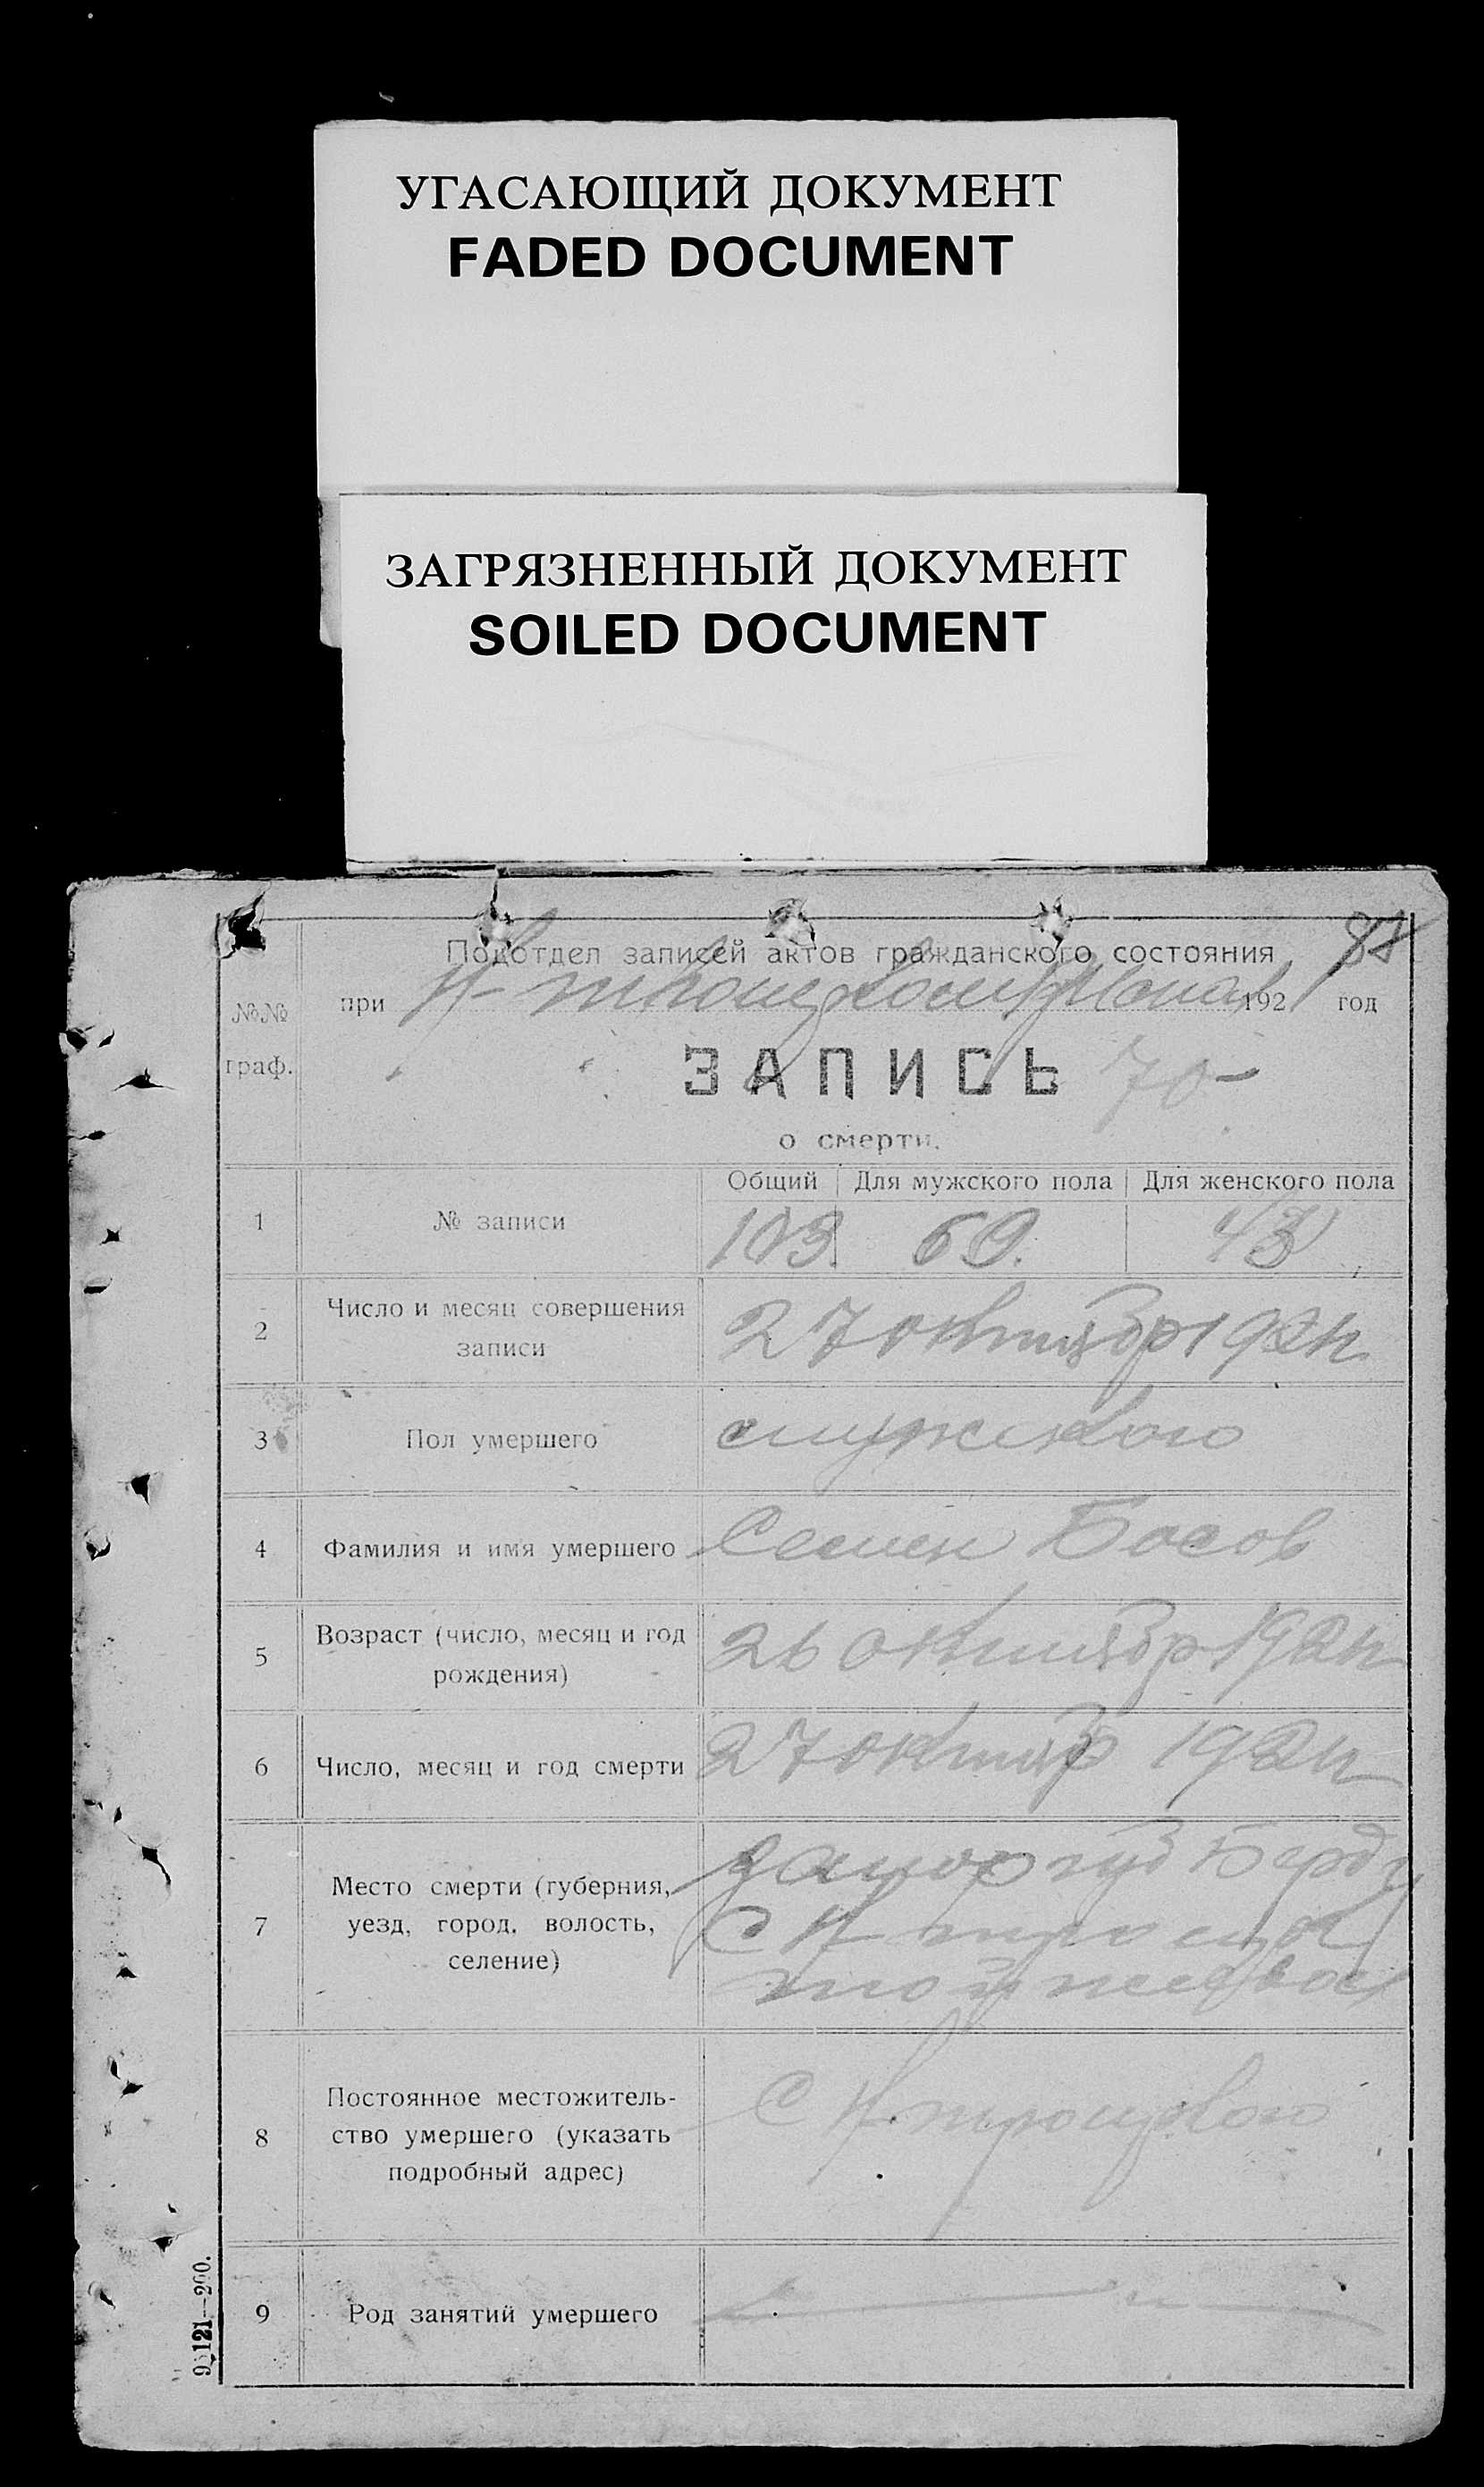 УГАСАЮЩИЙ ДОКУМЕНТ
FADED DOCUMENT
ЗАГРЯЗНЕННЫЙ ДОКУМЕНТ
SOILED DOCUMENT
Подотдел записей актов гражданского состояния
при 192 год
№№
граф.
ЗАПИСЬ 70
о смерти.
Общий Для мужского пола Для женского пола
1 № записи 103. 60. 43
2 Число и месяц совершения
записи
27 октябр 1921
3 Пол умершего мужского
4 Фамилия и имя умершего Семен Басов
5 Возраст (число, месяц и год
рождения)
26 октябр 1921
6 Число, месяц и год смерти 27 октябр 1921
7 Место смерти (губерния,
уезд, город, волость,
селение)
8 Постоянное местожитель-
ство умершего (указать
подробный адрес)
9 Род занятий умершего